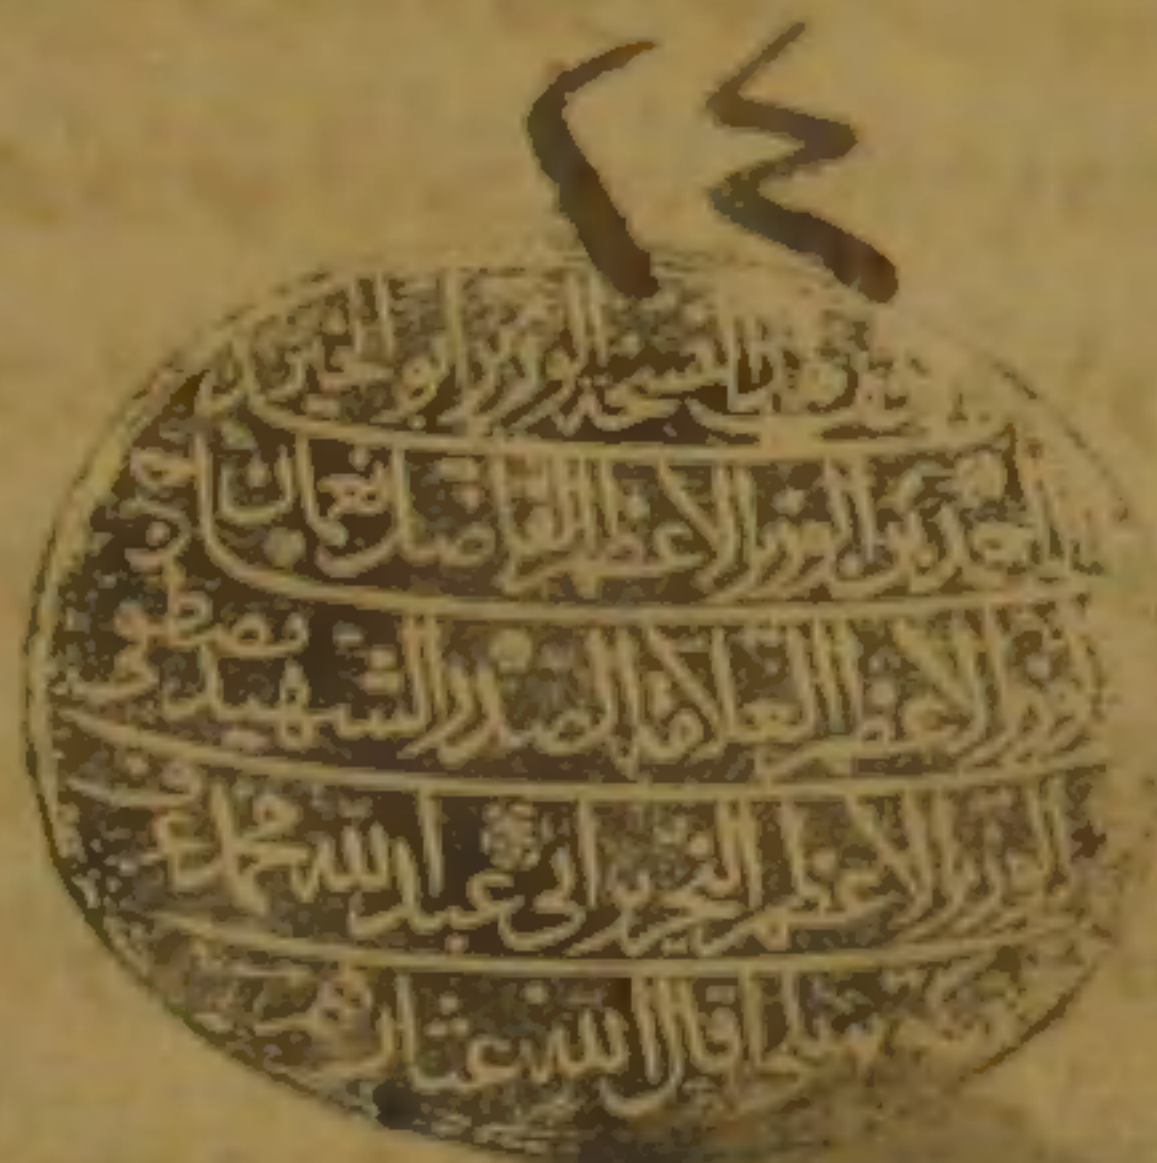 ٢٤
وقف هذه النسخة الوزير ابو الخير
احمد بن الوزير الاعظم الفاضل نعمان بن
الوزير الاعظم العلامة الصدر الشهيد مصطفى بن
الوزير الاعظم النحرير ابي عبد الله محمد عرف
اقال الله عثارهم